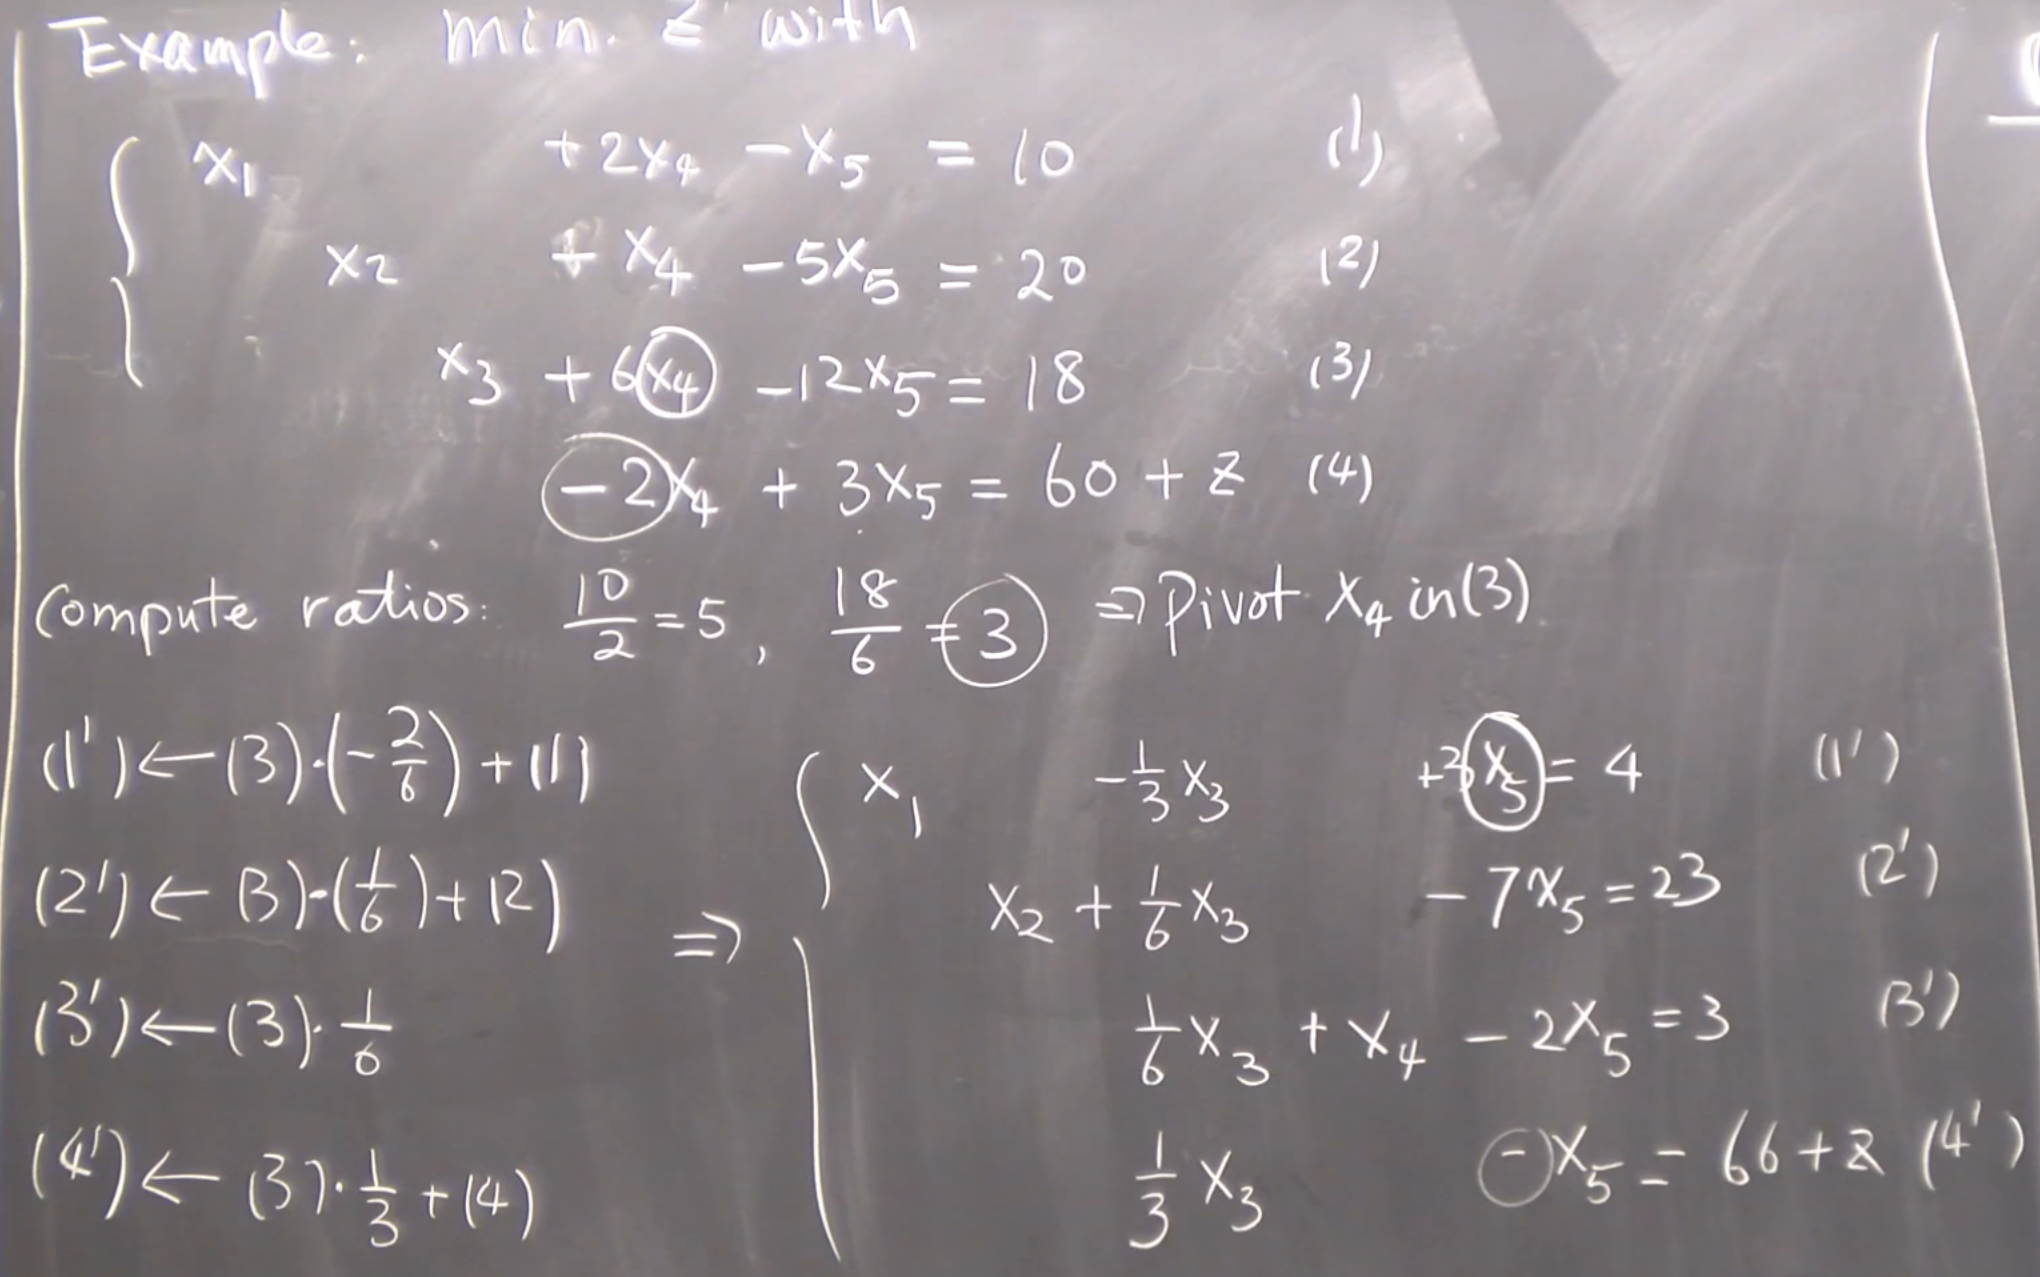 Example: min. z with
x₁ + 2x₄ - x₅ = 10 (1)
x₂ + x₄ - 5x₅ = 20 (2)
x₃ + 6x₄ - 12x₅ = 18 (3)
-2x₄ + 3x₅ = 60 + z (4)
Compute ratios: 10/2 = 5, 18/6 = 3 ⇒ Pivot x₄ in (3)
(1') ← (3)·(-2/6) + (1)
(2') ← (3)·(1/6) + (2)
(3') ← (3)·1/6
(4') ← (3)·1/3 + (4)
⇒
x₁ - 1/3 x₃ + 3x₅ = 4 (1')
x₂ + 1/6 x₃ - 7x₅ = 23 (2')
1/6 x₃ + x₄ - 2x₅ = 3 (3')
1/3 x₃ - x₅ = 66 + z (4')